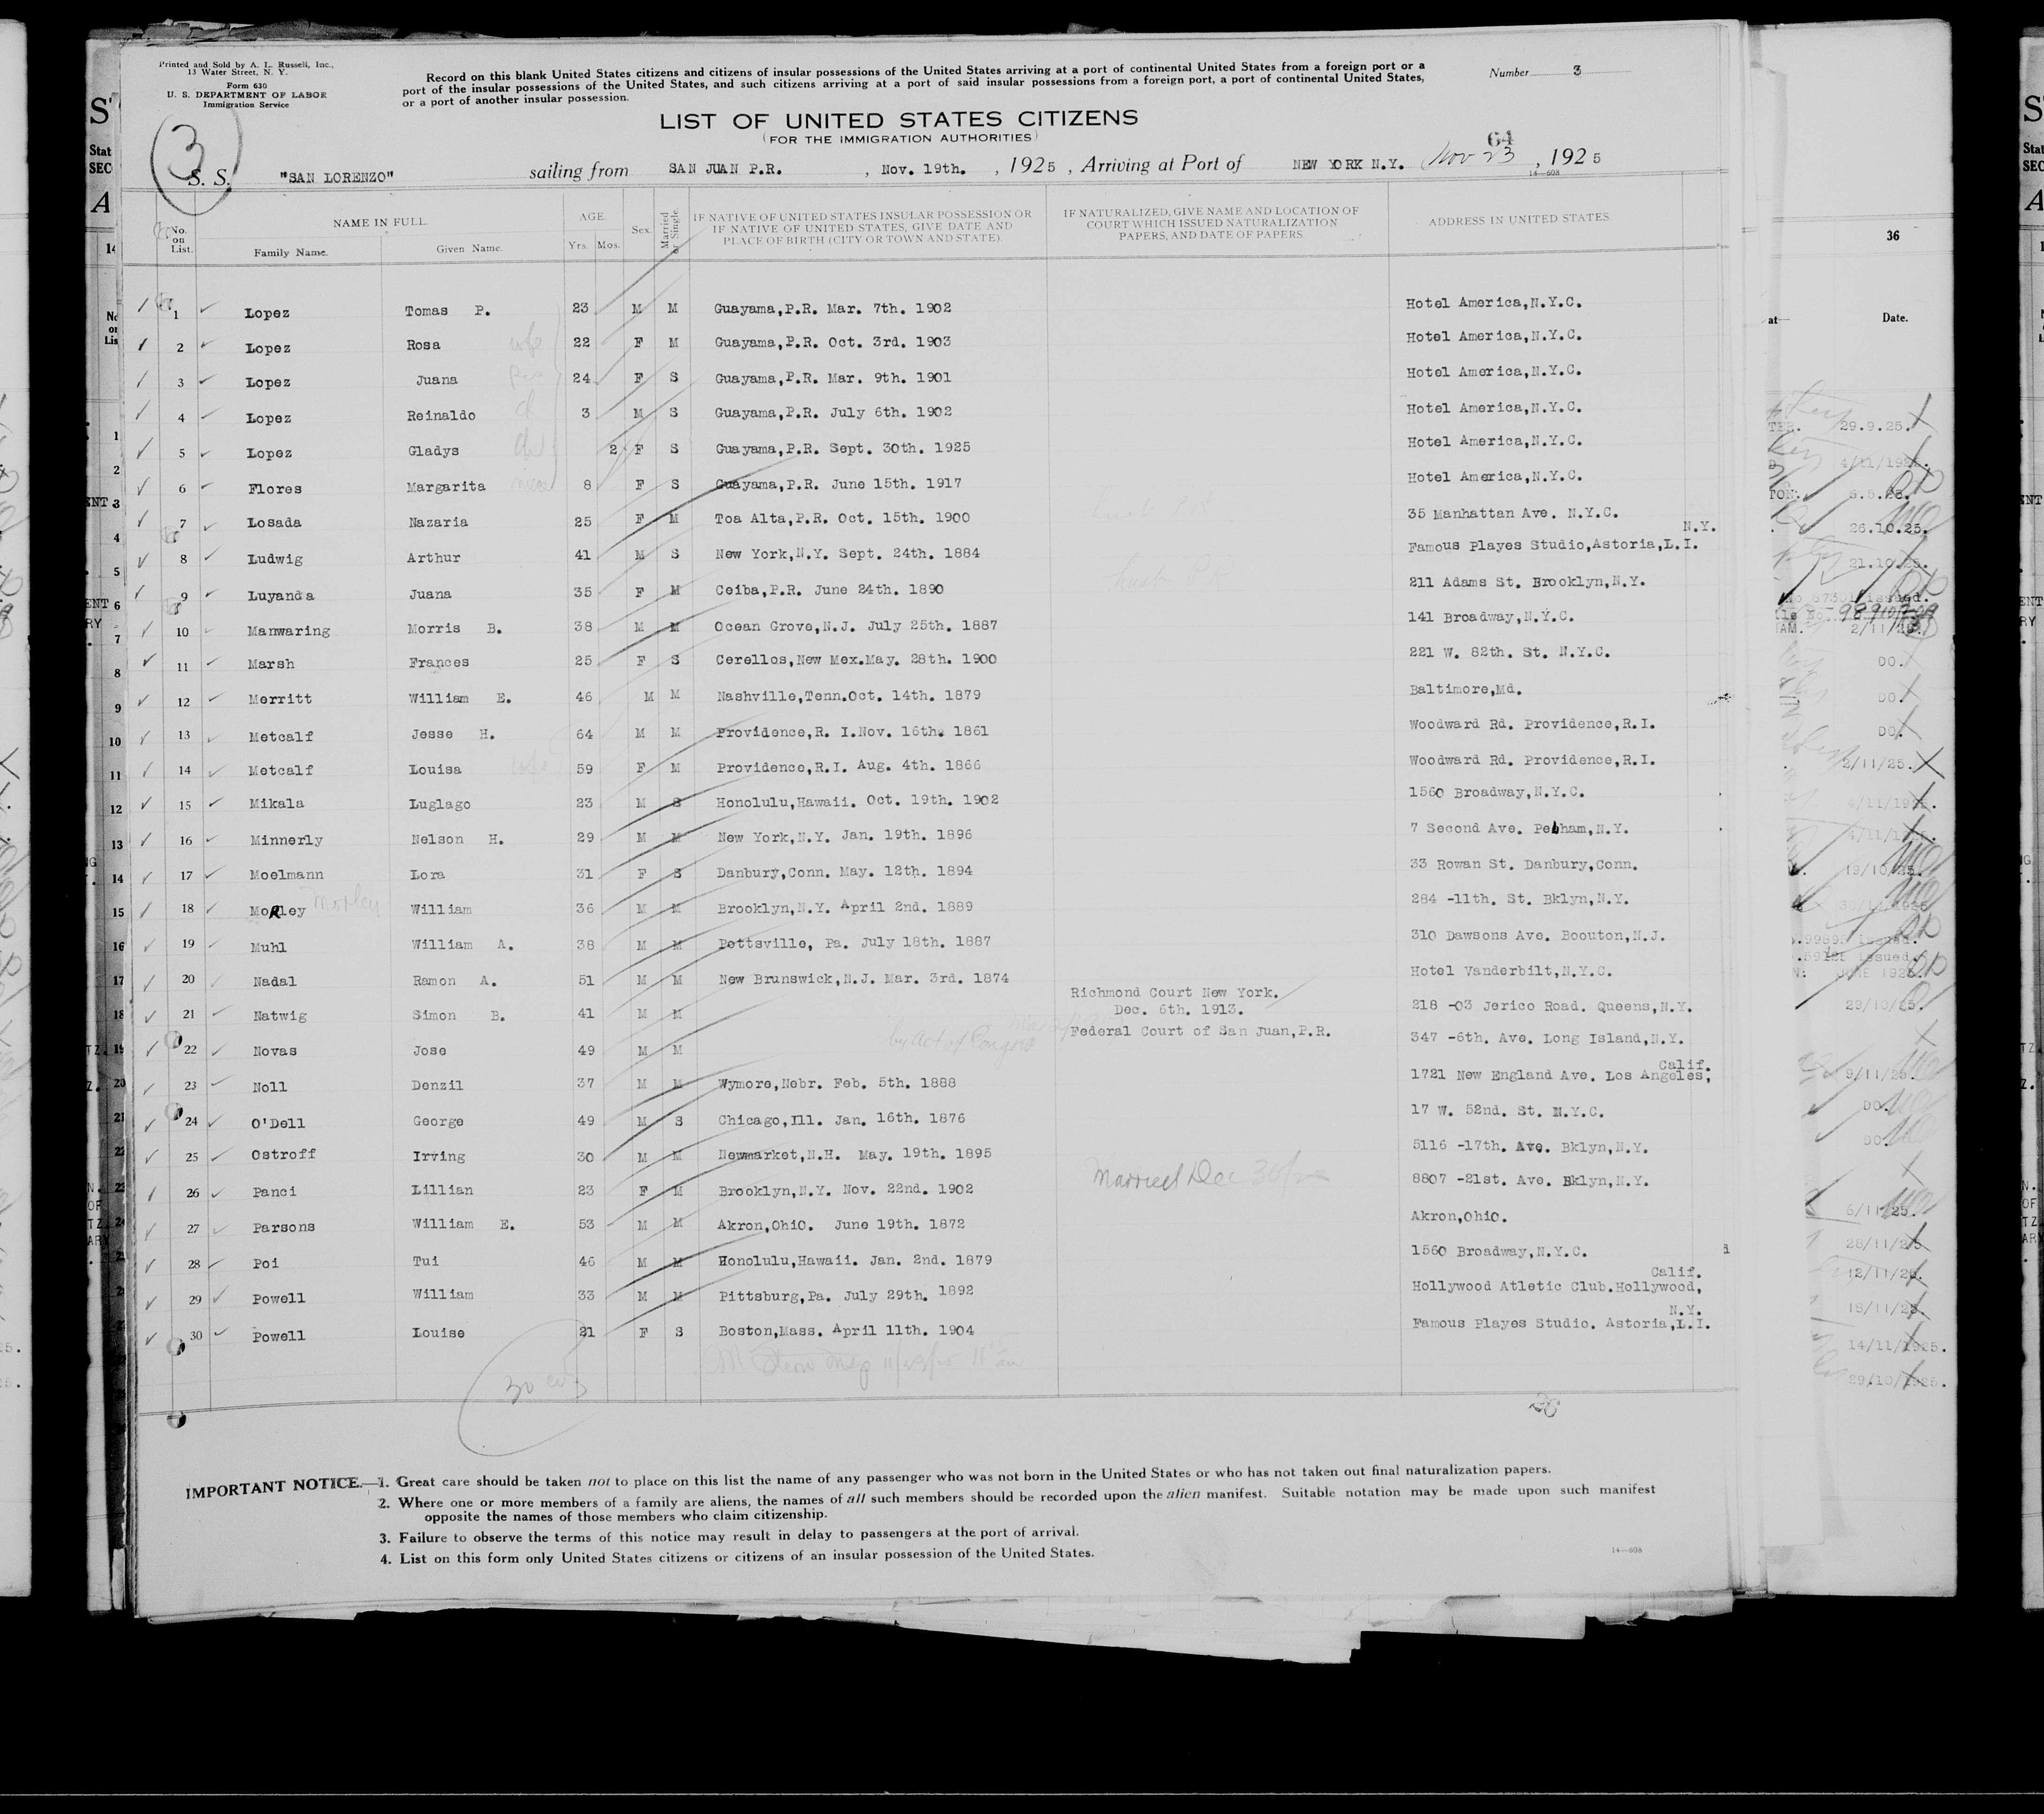 Printed and Sold by A. L. Russell, Inc.,
13 Water Street, N. Y.
Form 630
U. S. DEPARTMENT OF LABOR
Immigration Service
Record on this blank United States citizens and citizens of insular possessions of the United States arriving at a port of continental United States from a foreign port or a
port of the insular possessions of the United States, and such citizens arriving at a port of said insular possessions from a foreign port, a port of continental United States,
or a port of another insular possession.
Number 3
3
LIST OF UNITED STATES CITIZENS
(FOR THE IMMIGRATION AUTHORITIES)
64
S. S. "SAN LORENZO" sailing from SAN JUAN P.R. , Nov. 19th. , 1925 , Arriving at Port of NEW YORK N.Y. Nov 23 , 1925
14—608
No. on List. NAME IN FULL. Family Name. Given Name. AGE. Yrs. Mos. Sex. Married or Single. IF NATIVE OF UNITED STATES INSULAR POSSESSION OR IF NATIVE OF UNITED STATES, GIVE DATE AND PLACE OF BIRTH (CITY OR TOWN AND STATE). IF NATURALIZED, GIVE NAME AND LOCATION OF COURT WHICH ISSUED NATURALIZATION PAPERS, AND DATE OF PAPERS. ADDRESS IN UNITED STATES.
1 Lopez Tomas P. 23 M M Guayama,P.R. Mar. 7th. 1902 Hotel America,N.Y.C.
2 Lopez Rosa wife 22 F M Guayama,P.R. Oct. 3rd. 1903 Hotel America,N.Y.C.
3 Lopez Juana 24 F S Guayama,P.R. Mar. 9th. 1901 Hotel America,N.Y.C.
4 Lopez Reinaldo ch 3 M S Guayama,P.R. July 6th. 1902 Hotel America,N.Y.C.
5 Lopez Gladys ch 2 F S Guayama,P.R. Sept. 30th. 1925 Hotel America,N.Y.C.
6 Flores Margarita niece 8 F S Guayama,P.R. June 15th. 1917 Hotel America,N.Y.C.
7 Losada Nazaria 25 F M Toa Alta,P.R. Oct. 15th. 1900 35 Manhattan Ave. N.Y.C.
N.Y.
8 Ludwig Arthur 41 M S New York,N.Y. Sept. 24th. 1884 Famous Playes Studio,Astoria,L.I.
9 Luyanda Juana 35 F M Ceiba,P.R. June 24th. 1890 211 Adams St. Brooklyn,N.Y.
10 Manwaring Morris B. 38 M M Ocean Grove,N.J. July 25th. 1887 141 Broadway,N.Y.C.
11 Marsh Frances 25 F S Cerellos,New Mex.May. 28th. 1900 221 W. 82th. St. N.Y.C.
12 Merritt William E. 46 M M Nashville,Tenn.Oct. 14th. 1879 Baltimore,Md.
13 Metcalf Jesse H. 64 M M Providence,R. I.Nov. 16th. 1861 Woodward Rd. Providence,R.I.
14 Metcalf Louisa wife 59 F M Providence,R.I. Aug. 4th. 1866 Woodward Rd. Providence,R.I.
15 Mikala Luglago 23 M S Honolulu,Hawaii. Oct. 19th. 1902 1560 Broadway,N.Y.C.
16 Minnerly Nelson H. 29 M M New York,N.Y. Jan. 19th. 1896 7 Second Ave. Pelham,N.Y.
17 Moelmann Lora 31 F S Danbury,Conn. May. 12th. 1894 33 Rowan St. Danbury,Conn.
18 MoRley Morley William 36 M M Brooklyn,N.Y. April 2nd. 1889 284 -11th. St. Bklyn,N.Y.
19 Muhl William A. 38 M M Pottsville, Pa. July 18th. 1887 310 Dawsons Ave. Boouton,N.J.
20 Nadal Ramon A. 51 M M New Brunswick,N.J. Mar. 3rd. 1874 Hotel Vanderbilt,N.Y.C.
21 Natwig Simon B. 41 M M Richmond Court New York. Dec. 6th. 1913. 218 -03 Jerico Road. Queens,N.Y.
22 Novas Jose 49 M M by Act of Congress Federal Court of San Juan,P.R. 347 -6th. Ave. Long Island,N.Y.
Calif.
23 Noll Denzil 37 M M Wymore,Nebr. Feb. 5th. 1888 1721 New England Ave. Los Angeles,
24 O'Dell George 49 M S Chicago,Ill. Jan. 16th. 1876 17 W. 52nd. St. N.Y.C.
25 Ostroff Irving 30 M M Newmarket,N.H. May. 19th. 1895 5116 -17th. Ave. Bklyn,N.Y.
26 Panci Lillian 23 F M Brooklyn,N.Y. Nov. 22nd. 1902 Married Dec 8807 -21st. Ave. Bklyn,N.Y.
27 Parsons William E. 53 M M Akron,Ohio. June 19th. 1872 Akron,Ohio.
28 Poi Tui 46 M M Honolulu,Hawaii. Jan. 2nd. 1879 1560 Broadway,N.Y.C.
Calif.
29 Powell William 33 M M Pittsburg,Pa. July 29th. 1892 Hollywood Atletic Club.Hollywood,
N.Y.
30 Powell Louise 21 F S Boston,Mass. April 11th. 1904 Famous Playes Studio. Astoria,L.I.
30
IMPORTANT NOTICE.—1. Great care should be taken not to place on this list the name of any passenger who was not born in the United States or who has not taken out final naturalization papers.
2. Where one or more members of a family are aliens, the names of all such members should be recorded upon the alien manifest. Suitable notation may be made upon such manifest
opposite the names of those members who claim citizenship.
3. Failure to observe the terms of this notice may result in delay to passengers at the port of arrival.
4. List on this form only United States citizens or citizens of an insular possession of the United States.
14—608
36
Date.
29.9.25.
26.10.25.
21.10.25.
2/11/25.
DO.
DO.
DO.
2/11/25.
29/10/25.
9/11/25.
DO.
DO.
6/11/25.
28/11/25
12/11/25.
14/11/1925.
29/10/1925.